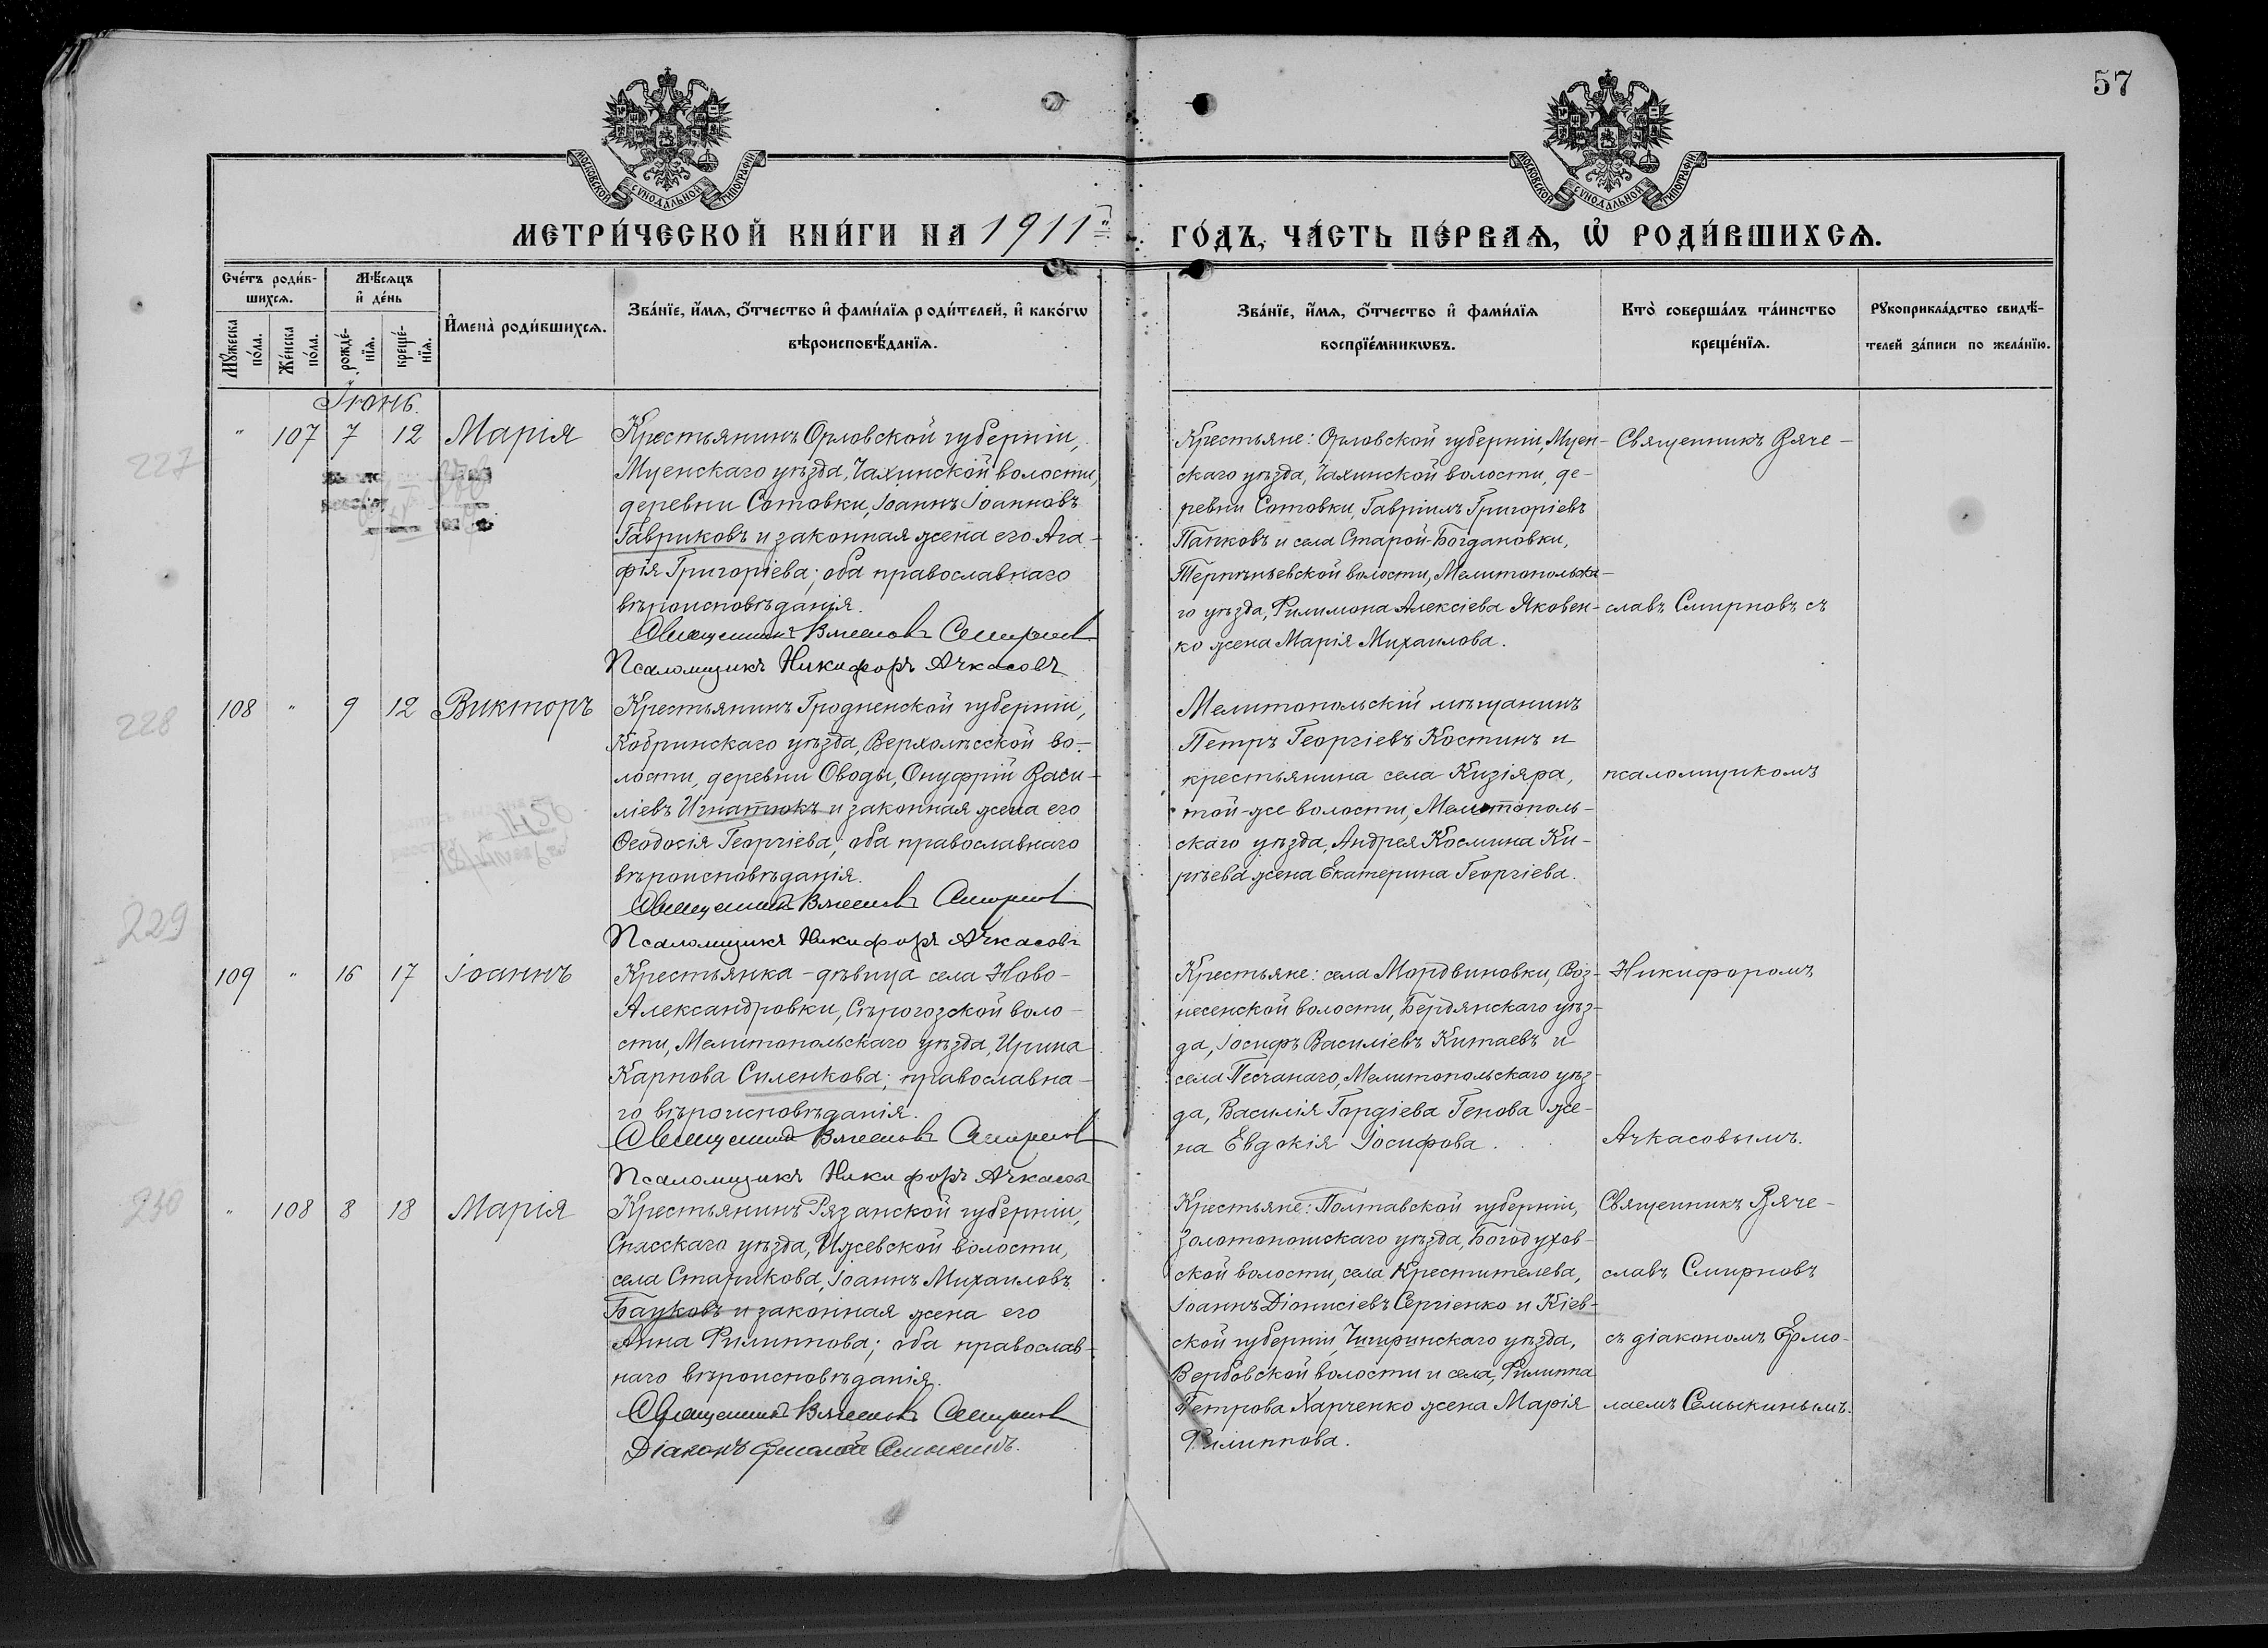 57
МОСКОВСКОЙ СѴНОДАЛЬНОЙ ТИПОГРАФІИ
МОСКОВСКОЙ СѴНОДАЛЬНОЙ ТИПОГРАФІИ
МЕТРИ́ЧЕСКОЙ КНИ́ГИ НА 1911й ГО́ДЪ, ЧА́СТЬ ПЕ́РВАѦ, Ѡ РОДИ́ВШИХСѦ.
Сче́тъ роди́в-
шихсѧ.
Мѣ́сѧцъ
и де́нь
Мꙋ́жеска
по́ла.
Же́нска
по́ла.
рожде́-
нїѧ.
креще́-
нїѧ.
Имена̀ роди́вшихсѧ.
Зва́нїе, и́мѧ, ѻ́тчество и фами́лїѧ роди́телей, и како́гѡ
вѣроисповѣ́данїѧ.
Зва́нїе, и́мѧ, ѻ́тчество и фами́лїѧ
воспрїе́мникѡвъ.
Кто̀ соверша́лъ та́инство
креще́нїѧ.
Рꙋкоприкла́дство свидѣ́-
телей за́писи по жела́нїю.
Іюнь.
227
" 107 7 12 Марія
Крестьянинъ Орловской губерніи,
Мценскаго уѣзда, Чахинской волости,
деревни Сотовки, Іоаннъ Іоанновъ
Гавриковъ и законная жена его Ага-
фія Григоріева; оба православнаго
вѣроисповѣданія.
Священникъ Вячеславъ Смирновъ
Псаломщикъ Никифоръ Ачкасовъ
Крестьяне: Орловской губерніи, Мцен-
скаго уѣзда, Чахинской волости, де-
ревни Сотовки, Гавріилъ Григоріевъ
Папковъ и села Старой-Богдановки,
Терпѣньевской волости, Мелитопольска-
го уѣзда, Филимона Алексіева Яковен-
ко жена Марія Михаилова.
Священникъ Вяче-
славъ Смирновъ съ
228
108 " 9 12 Викторъ
Крестьянинъ Гродненской губерніи,
Кобринскаго уѣзда, Верхолѣсской во-
лости, деревни Оводы, Онуфрій Васи-
ліевъ Игнатюкъ и законная жена его
Ѳеодосія Георгіева; оба православнаго
вѣроисповѣданія.
Священникъ Вячеславъ Смирновъ
Псаломщикъ Никифоръ Ачкасовъ
Мелитопольскій мѣщанинъ
Петръ Георгіевъ Костинъ и
крестьянина села Кизіяра,
той-же волости, Мелитополь-
скаго уѣзда, Андрея Космина Ки-
рѣева жена Екатерина Георгіева.
псаломщикомъ
229
109 " 16 17 Іоаннъ
Крестьянка-дѣвица села Ново-
Александровки, Сѣрогозской воло-
сти, Мелитопольскаго уѣзда, Ирина
Карпова Силенкова; православна-
го вѣроисповѣданія.
Священникъ Вячеславъ Смирновъ
Псаломщикъ Никифоръ Ачкасовъ
Крестьяне: села Мордвиновки, Воз-
несенской волости, Бердянскаго уѣз-
да, Іосифъ Василіевъ Китаевъ и
села Песчанаго, Мелитопольскаго уѣз-
да, Василія Гордіева Генова же-
на Евдокія Іосифова.
Никифоромъ
Ачкасовымъ.
230
" 108 8 18 Марія
Крестьянинъ Рязанской губерніи,
Спасскаго уѣзда, Ижевской волости,
села Старикова, Іоаннъ Михаиловъ
Бауковъ и законная жена его
Анна Филиппова; оба православ-
наго вѣроисповѣданія.
Священникъ Вячеславъ Смирновъ
Діаконъ Ермолай Семыкинъ.
Крестьяне: Полтавской губерніи,
Золотоношскаго уѣзда, Богодухов-
ской волости, села Крестителева,
Іоаннъ Діонисіевъ Сергіенко и Кіев-
ской губерніи, Чигиринскаго уѣзда,
Вербовской волости и села, Филиппа
Петрова Харченко жена Марія
Филиппова.
Священникъ Вяче-
славъ Смирновъ
съ діакономъ Ермо-
лаемъ Семыкинымъ.